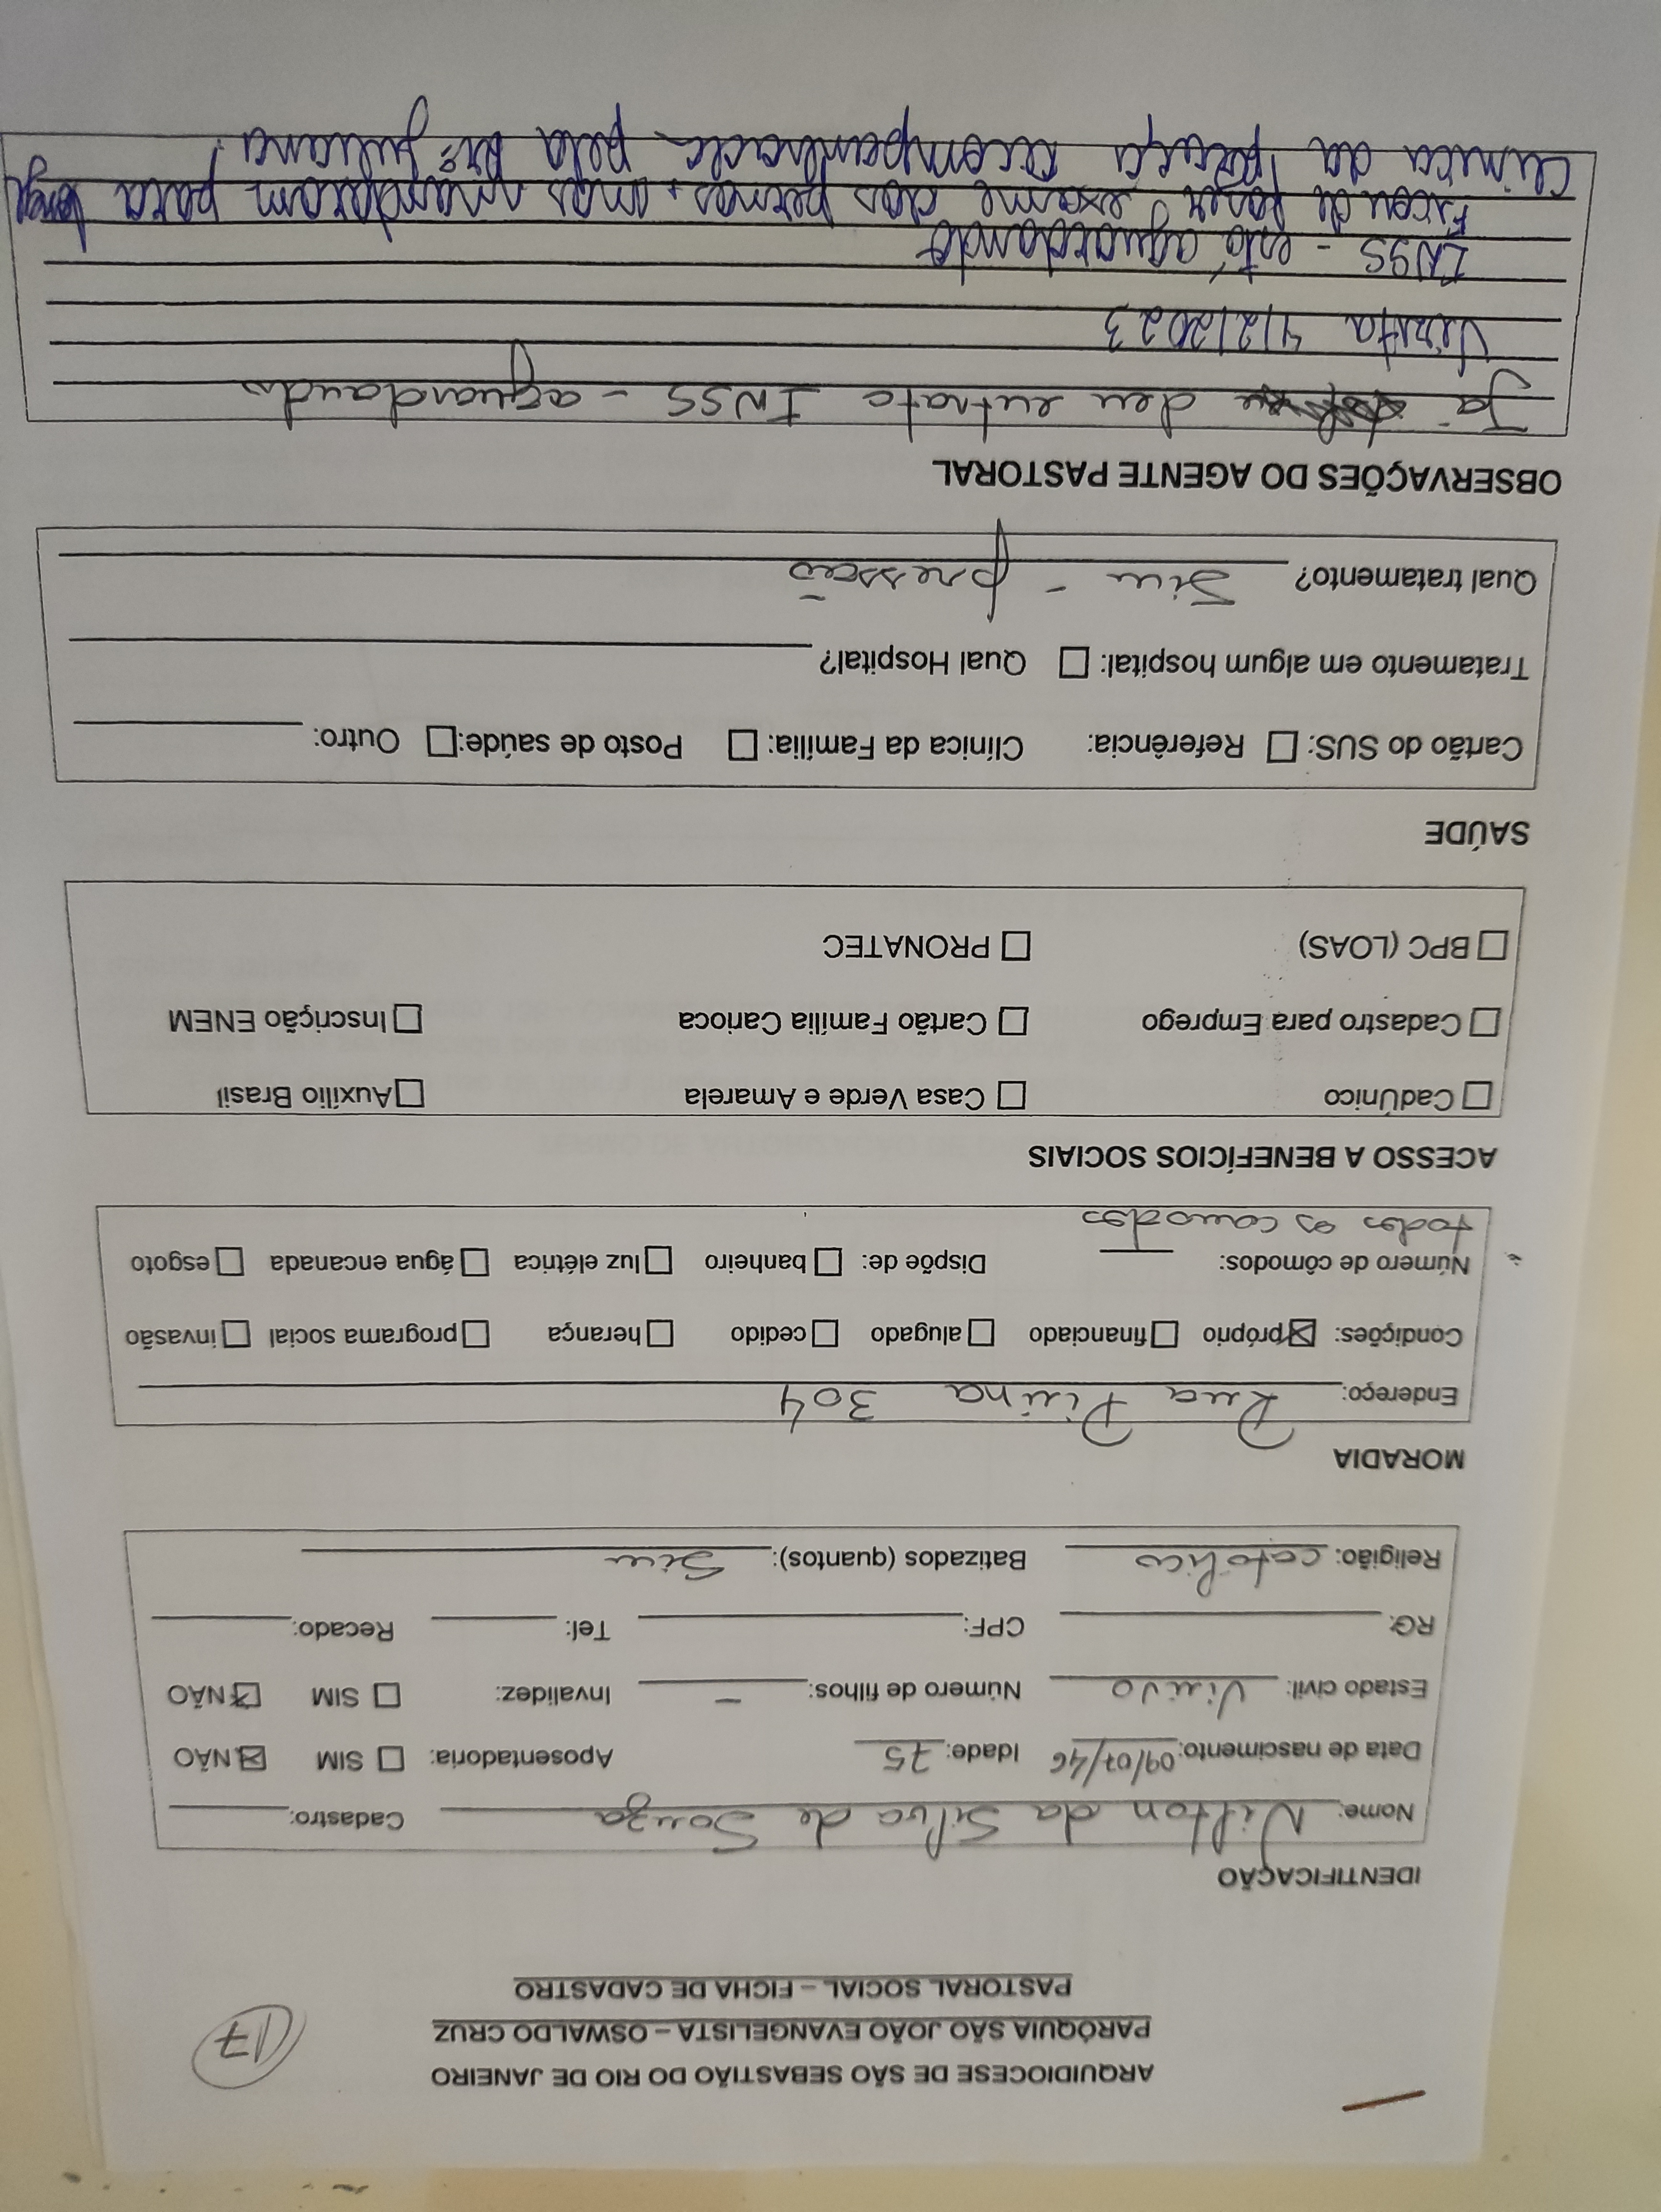 17
ARQUIDIOCESE DE SÃO SEBASTIÃO DO RIO DE JANEIRO
PARÓQUIA SÃO JOÃO EVANGELISTA – OSWALDO CRUZ
PASTORAL SOCIAL – FICHA DE CADASTRO
IDENTIFICAÇÃO
Nome: Nilton da Silva de Souza Cadastro:
Data de nascimento: 09/07/46 Idade: 75 Aposentadoria: ☐ SIM ☒ NÃO
Estado civil: Viuvo Número de filhos: – Invalidez: ☐ SIM ☒ NÃO
RG: CPF: Tel: Recado:
Religião: catolico Batizados (quantos): Sim
MORADIA
Endereço: Rua Piuna 304
Condições: ☒ próprio ☐ financiado ☐ alugado ☐ cedido ☐ herança ☐ programa social ☐ invasão
Número de cômodos: Dispõe de: ☐ banheiro ☐ luz elétrica ☐ água encanada ☐ esgoto
todos os comodos
ACESSO A BENEFÍCIOS SOCIAIS
☐ CadÚnico ☐ Casa Verde e Amarela ☐ Auxílio Brasil
☐ Cadastro para Emprego ☐ Cartão Família Carioca ☐ Inscrição ENEM
☐ BPC (LOAS) ☐ PRONATEC
SAÚDE
Cartão do SUS: ☐ Referência: Clínica da Família: ☐ Posto de saúde: ☐ Outro:
Tratamento em algum hospital: ☐ Qual Hospital?
Qual tratamento? Sim – pressão
OBSERVAÇÕES DO AGENTE PASTORAL
Já deu entrato INSS – aguardando
Visita 4/2/2023
INSS – está aguardando
Ficou de fazer exame das pernas, mas mandaram para longe
Clinica da acompanhada pela Drª Juliana.